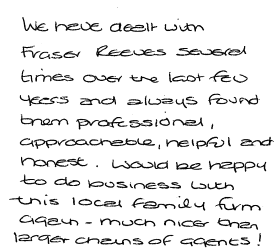 We have dealt with
Fraser Reeves several
times over the last few
years and always found
them professional,
approachable, helpful and
honest. Would be happy
to do business with
this local family firm
again - much nicer than
larger chains of agents!